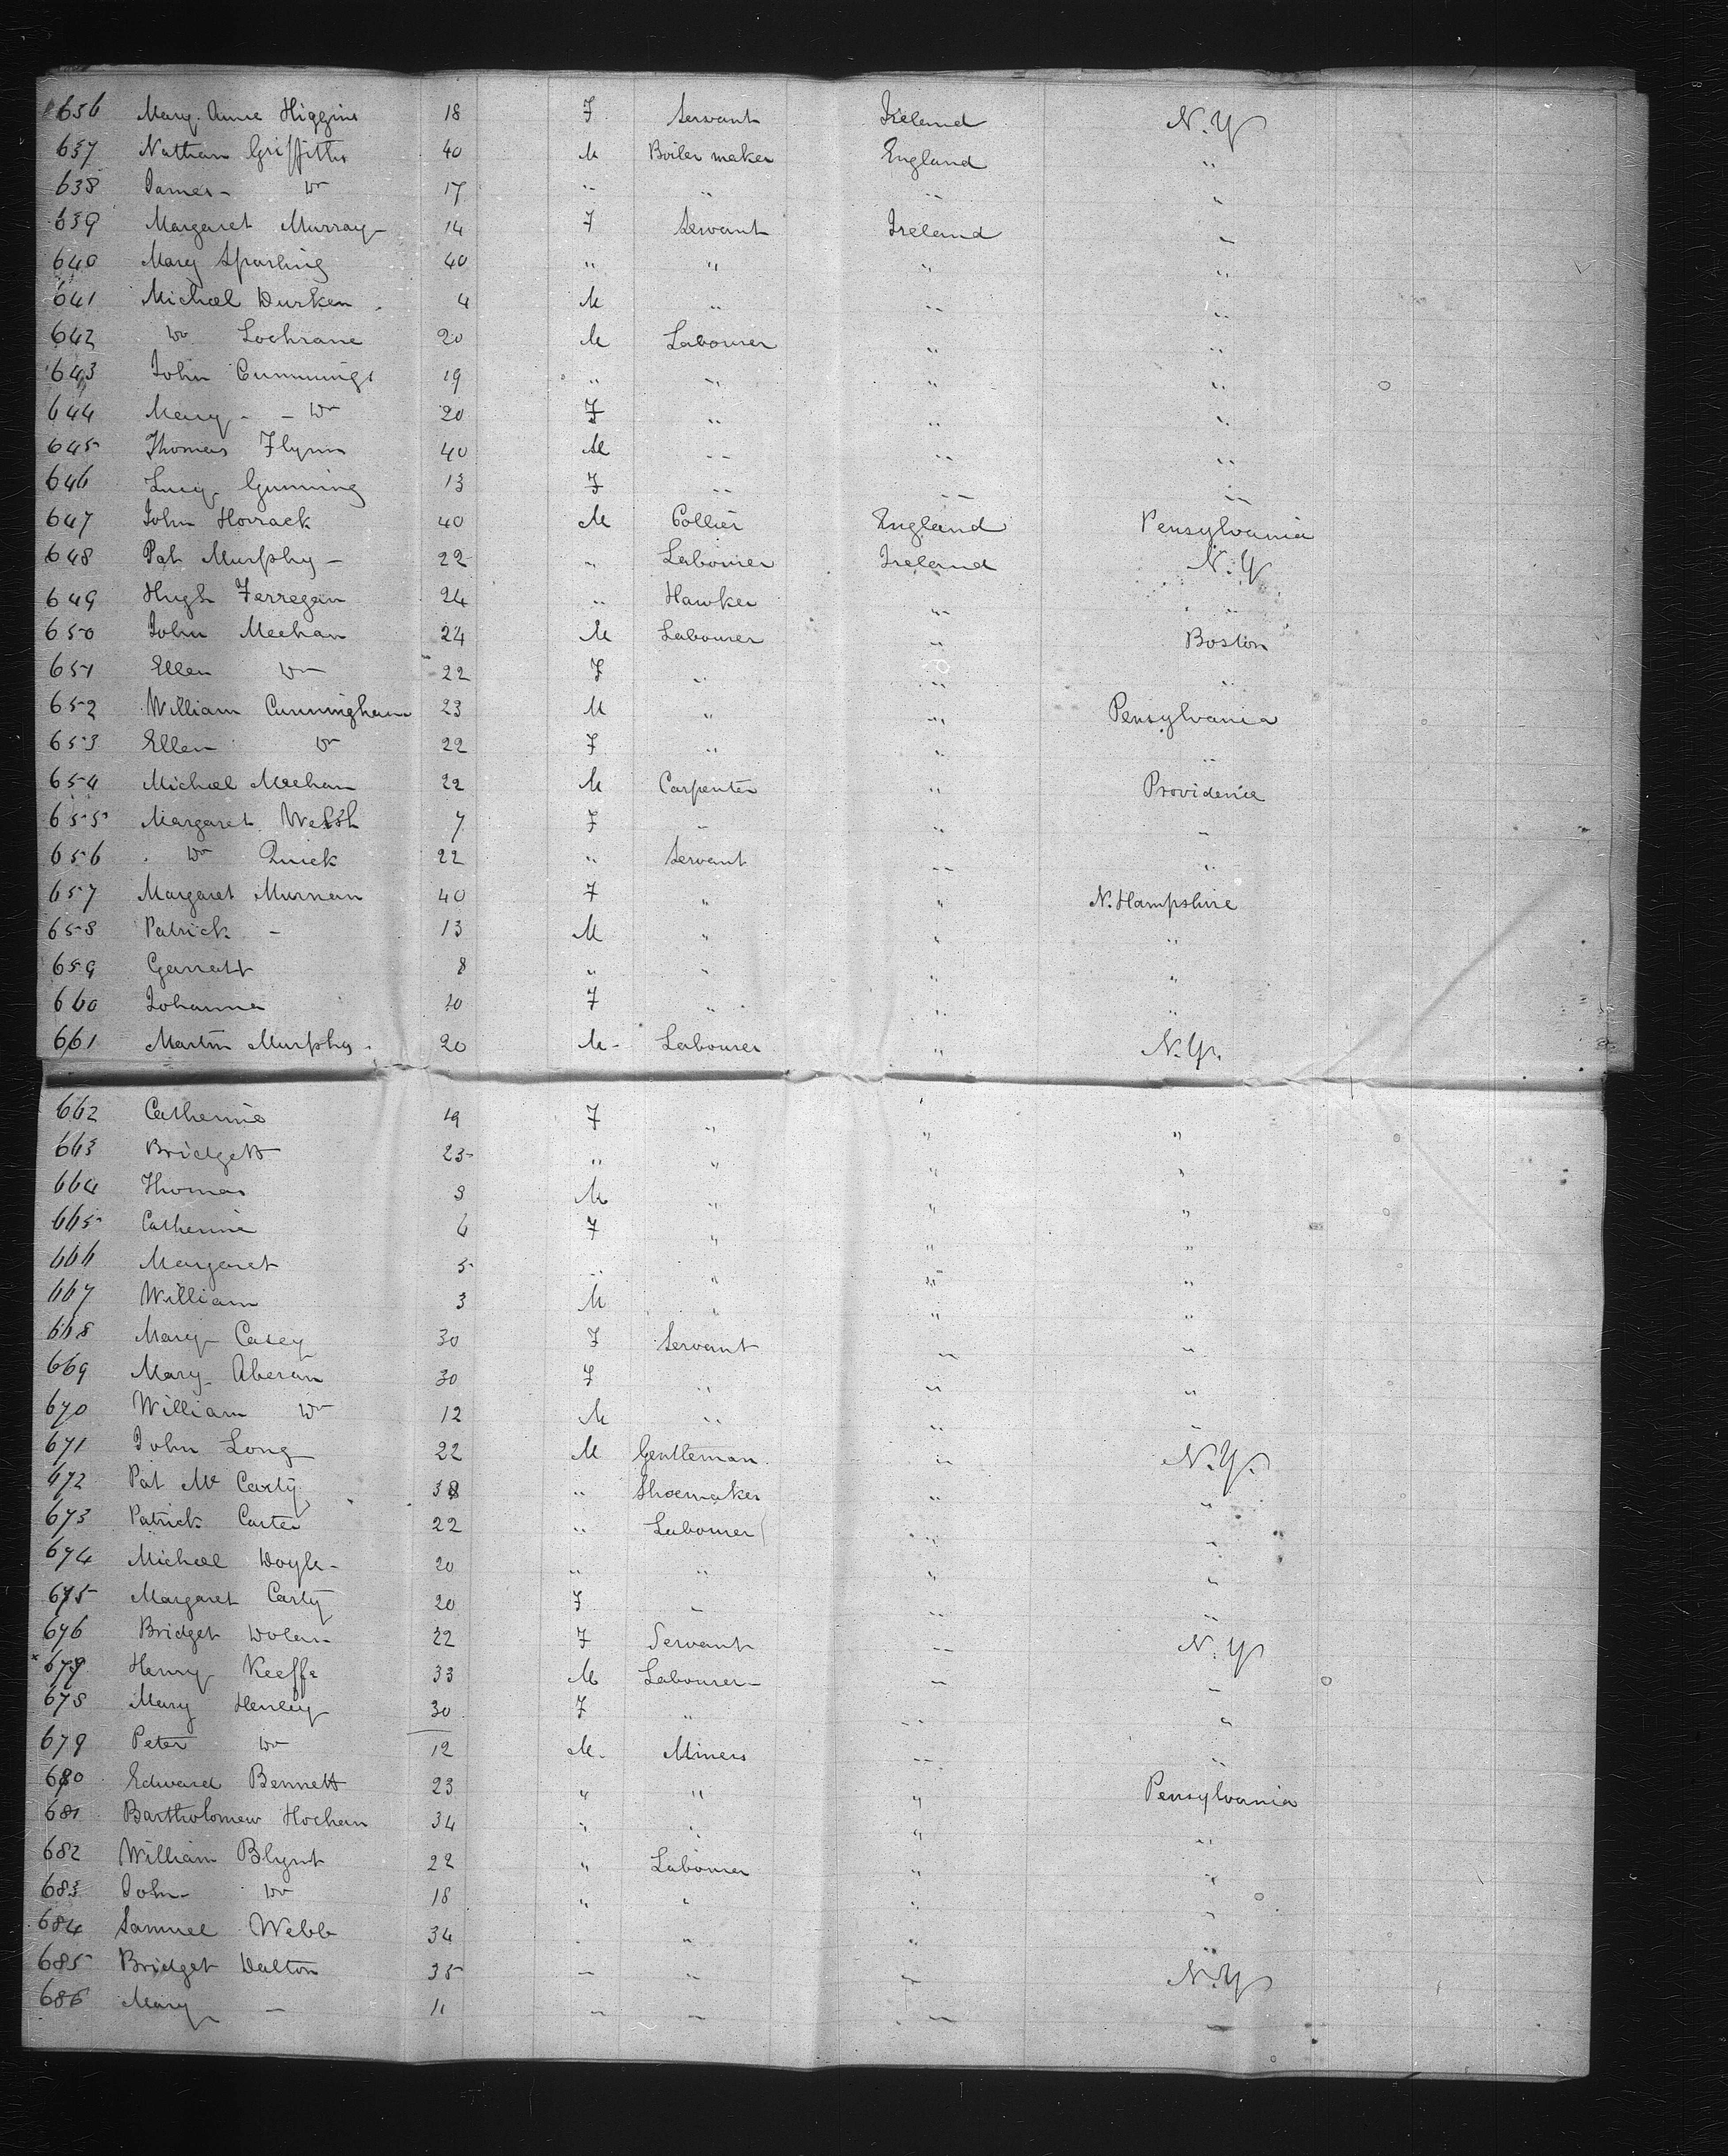 636 Mary Anne Higgins 18 F Servant Ireland N.Y
637 Nathan Griffiths 40 M Boiler maker England "
638 James - Do 17 " " " "
639 Margaret Murray 14 F Servant Ireland "
640 Mary Sparling 40 " " " "
641 Michael Durken 4 M " " "
642 Do Lochrane 20 M Labourer " "
643 John Cummings 19 " " " "
644 Mary - - Do 20 F " " "
645 Thomas Flynn 40 M " " "
646 Lucy Gunning 13 F " " "
647 John Horrack 40 M Collier England Pensylvania
648 Pat Murphy - 22 " Labourer Ireland N.Y
649 Hugh Ferregan 24 " Hawker " "
650 John Meehan 24 M Labourer " Boston
651 Ellen Do 22 F " " "
652 William Cunningham 23 M " " Pensylvania
653 Ellen Do 22 F " " "
654 Michael Meehan 22 M Carpenter " Providence
655 Margaret Welsh 7 F " " "
656 Do Quick 22 " Servant " "
657 Margaret Murnan 40 F " " N. Hampshire
658 Patrick - 13 M " " "
659 Garratt 8 " " " "
660 Johanna 10 F " " "
661 Martin Murphy 20 M - Labourer " N.Y.
662 Catherine 19 F " " "
663 Bridgett 23 " " " "
664 Thomas 8 M " " "
665 Catherine 6 F " " "
666 Margaret 5 " " " "
667 William 3 M " " "
668 Mary Casey 30 F Servant " "
669 Mary Aberan 30 F " " "
670 William Do 12 M " " "
671 John Long 22 M Gentleman " N.Y.
672 Pat Mc Carty 38 " Shoemaker " "
673 Patrick Carter 22 " Labourer " "
674 Michael Doyle - 20 " " " "
675 Margaret Carty 20 F " " "
676 Bridget Dolan 22 F Servant " N.Y
677 Henry Keeffe 33 M Labourer - " "
678 Mary Henley 30 F " " "
679 Peter Do 12 M. Miners " "
680 Edward Bennett 23 " " " Pensylvania
681 Bartholomew Hochen 34 " " " "
682 William Blynt 22 " Labourer " "
683 John Do 18 " " " "
684 Samuel Webb 34 " " " "
685 Bridget Dalton 35 " " " N.Y
686 Mary - 11 " " " "